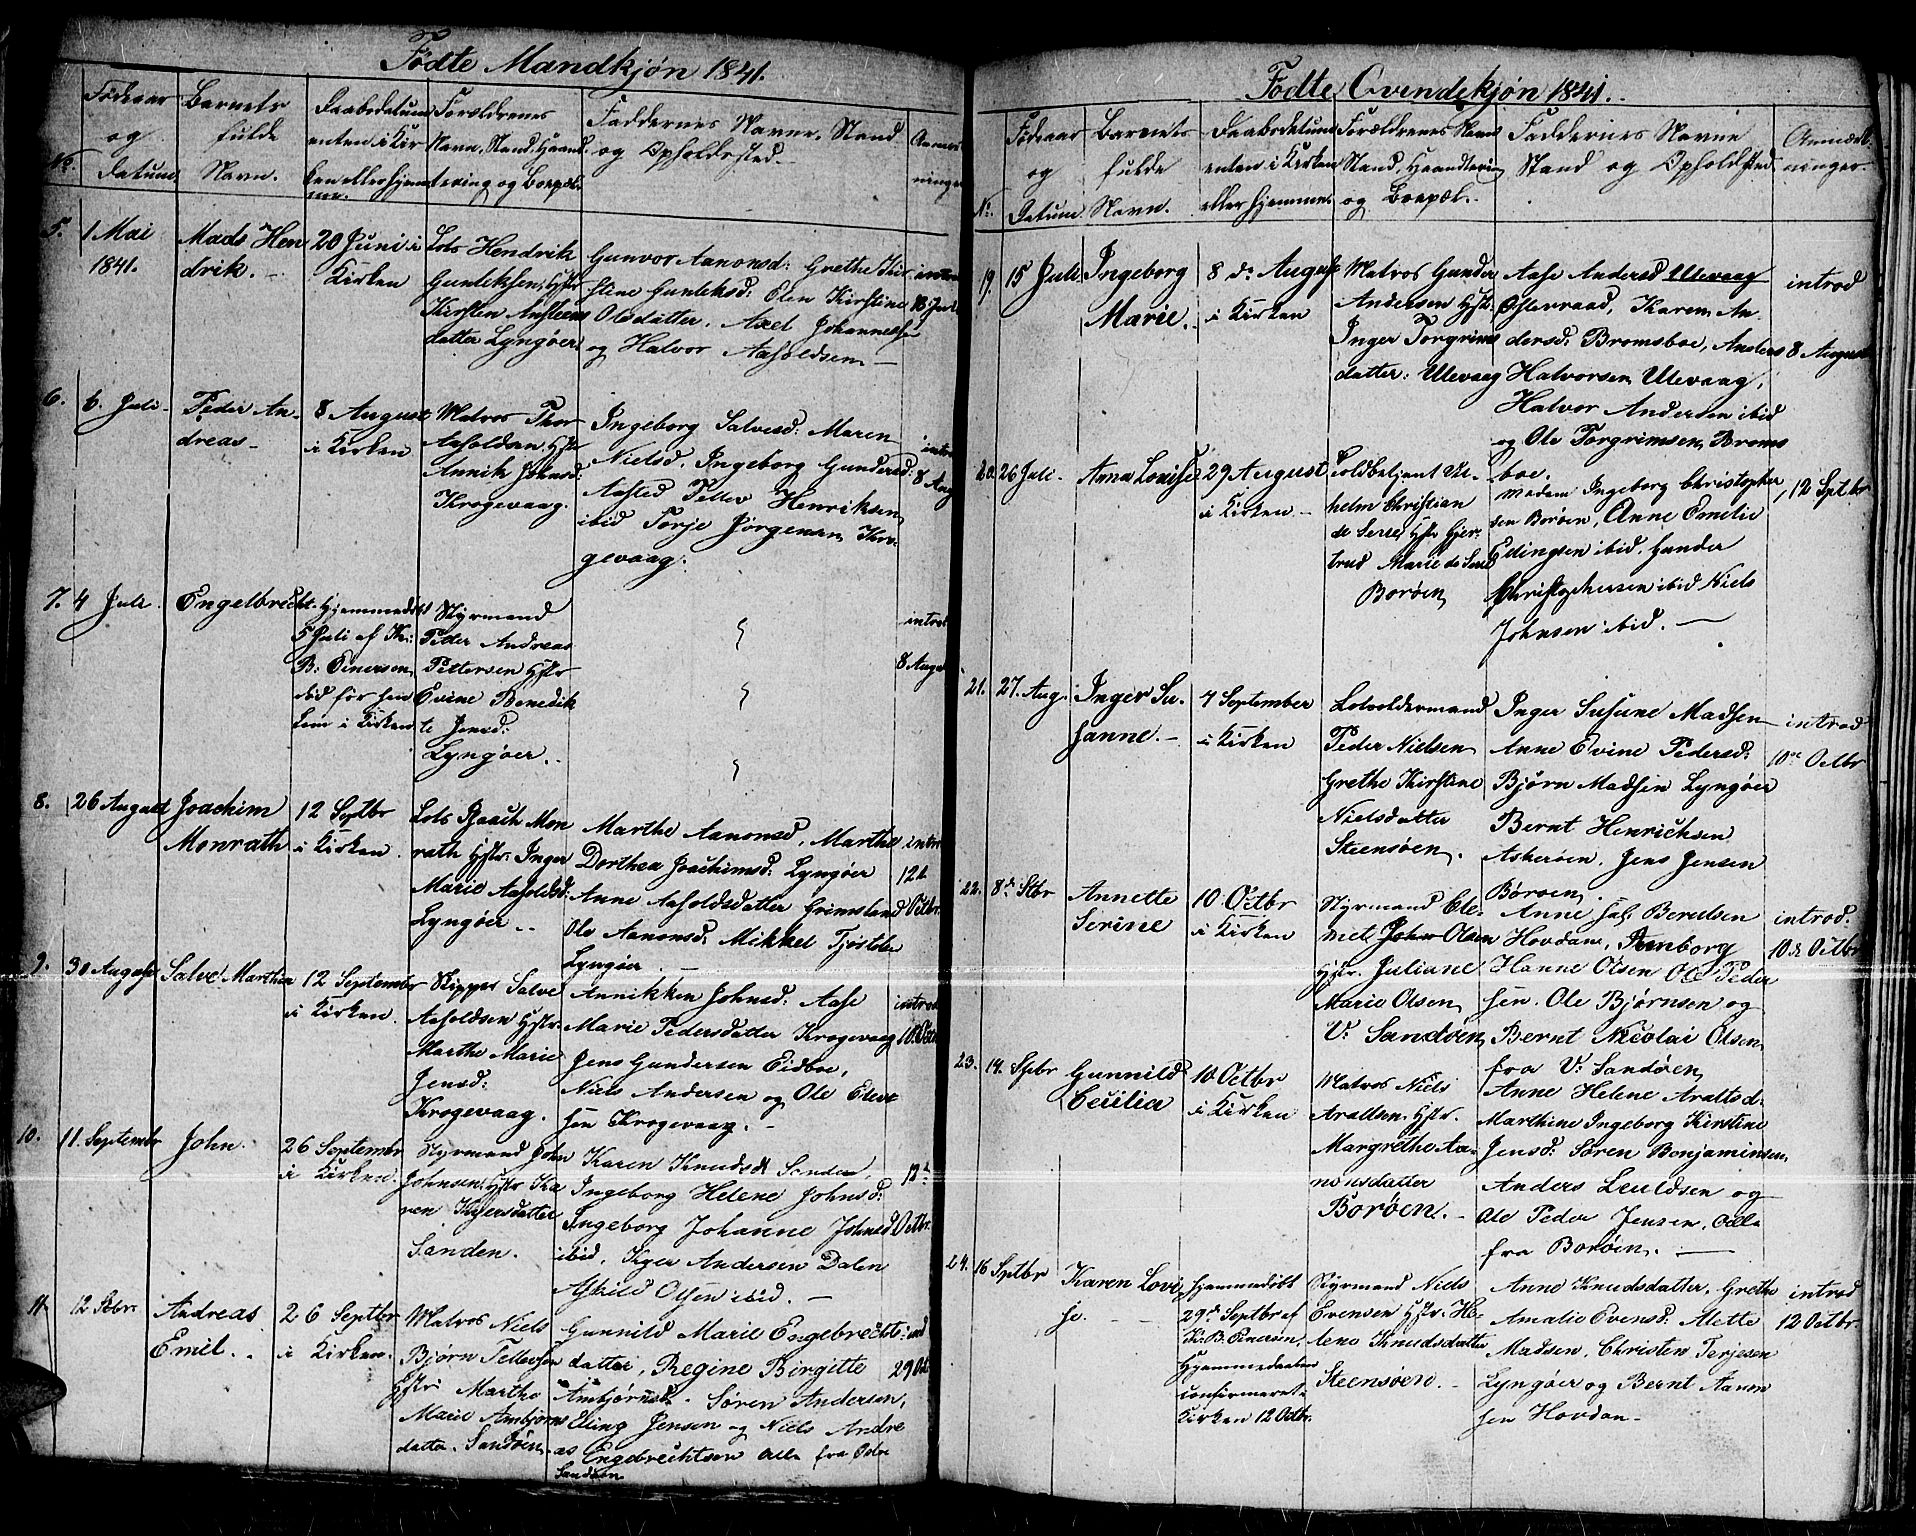 Födte Mandkjøn 1841.
No.
Födeaar
og
Datum
Barnets
fulde
Navn.
Daabsdatum
enten i Kir
ken eller hjem
me.
Forældrenes
Navn, Stand, Haand
tering og Boepæl.
Faddernes Navne, Stand
og Opholdssted.
5.
1 Mai
1841.
Mads Hen
drik. -
20 Juni i
Kirken
Lods Hendrik
Gunleksen, Hstr
Kirsten Ansteens
datter Lyngøer.
Gunvor Aanonsd: Grethe Kir
stine Gunleksd: Olen Kirstine
Olsdatter. Axel Johannesse
og Halvor Aasoldsen -
introd
6.
6. Juli
Peder An-
dreas -
8 August
i Kirken
Matros Thor
Aasoldsen Hstr
Annik Johnsd:
Krogevaag.
Ingeborg Salvesd: Maren
Nielsd. Ingeborg Gundersd:
Aasted Tellev Henriksen
ibid Torje Jörgensen Kro-
gevaag.
introd
8 Aug
7.
4 Juli
Engelbrecht
Hjemmedøbt
5 Juli af Kr:
B: Enersen
død før frem
kom i Kirken
Styrmand
Peder Andreas
Pettersen Hstr
Evine Benedik
te Jensd:
Lyngøer.
introd
8 Augu
8.
26 August
Joachim
Monrath
12 Septbr
i Kirken.
Lods Raach Mon
rath Hstr. Inger
Marie Aasoldsd:
Lyngøer
Marthe Aanonsd, Marthe
Dorthea Joachimsd: Lyngøer
Anne Aasoldsdatter Grimsland
Ole Aanonsd: Mikkel Tjöstels
Lyngøer -
introd
12t
Octbr.
9.
30 August
Salve Marthin
12 Septembr
i Kirken.
Skipper Salve
Aasoldsen Hstr.
Marthe Marie
Jensd:
Krogevaag.
Annikken Johnsd: Aase
Marie Pedersdatter Krogevaag
Jens Gundersen Eidboe,
Niels Andersen og Ole Eleve
sen Krogevaag. -
introd
10.
11. Septembr
John.
26 Septembr
i Kirken.
Styrmand John
Johnsen, Hstr Ka
ren Kigersdatter
Sanden.
Karen Knudsd Sanden,
Ingeborg Helene Johnsd:
Ingeborg Johanne Johnsd
ibid, Kiger Andersen Dalen
Askild Olsen ibid. -
Octbr.
11.
12 Stbr.
Andreas
Emil.
26 Septbr
i Kirken.
Matros Niels
Bjørn Tellevsen
Hstr Marthe
Marie Ambjörns
datter. Sandøen.
Gunnild Marie Engebrechts-
datter, Regine Birgitte
Ambjörnsd. Søren Andersen,
Elling Jensen og Niels Andre
as Engebrechtsen Alle fra Östre
Sandøen
29 Oct
Födte Qvindekjøn 1841.
No.
Födeaar
og
Datum
Barnets
fulde
Navn.
Daabsdatum
enten i Kirken
eller hjemme.
Forældrenes Navn
Stand, Haandtering
og Boepæl.
Faddernes Navne
Stand og Opholdssted
Anmærk-
ninger.
19.
15 Juli
Ingeborg
Marie.
8 de August
i Kirken
Matros Gunder
Andersen Hstr.
Inger Torgrims
datter: Ulevaag
Aase Andersd Ulevaag
Osteraad, Karen An-
dersd. Bromsboe, Anders
Halvorsen Ulevaag,
Halvor Andersen ibid
og Ole Torgrimsen, Broms
boe.
introd
8 August
20.
26 Juli.
Anna Louise
29 August
i Kirken -
Toldbetjent Vil-
helm Christian
de Seue, Hstr Gjer-
trud Marie de Seue
Borøen
Madam Ingeborg Christopher
sen Borøen, Anne Emilie
Edingsen ibid. Gunder
Christophersen ibid Niels
Johnsen ibid. -
12 Sptbr
21.
27. Aug.
Inger Su-
sanne. -
4 September
i Kirken
Lodsoldermand
Peder Nielsen
Grethe Kirstine
Nielsdatter
Steensøen.
Inger Susane Madsen
Anne Evine Pedersd:
Bjørn Madsen Lyngøer
Bernt Henrichsen
Askerøen, Jens Jensen
Børøen.
introd
10de Octbr
22.
8de Stbr
Annette
Serine
10 Octbr
i Kirken
Styrmand Cle-
met John Olsen
Hstr. Juliane
Marie Olsen
V: Sandøen
Anne Berulsen
Hovdan, Amborg
Hanne Olsen Ole Peder
sen. Ole Bjørnsen og
Bernt Nicolai Olsen
fra V: Sandøen
introd.
10de Octbr
23.
14. Sptbr
Gunnild
Cecilia
10 Octbr
i Kirken
Matros Niels
Araldsen, Hstr.
Margrethe Aa-
nonsdatter
Borøen. -
Anne Helene Araltsd:
Marthine Ingeborg Kirstine
Jensd: Søren Benjaminsen,
Anders Leuldsen og
Ole Peder Jensen, Alle
fra Borøen. -
24.
16 Sptbr
Karen Lovi
se.
hjemmedöbt
29de Septbr af
Kr: B. Enersen,
Hjemmedaaben
confirmeret i
Kirken 12 Octbr.
Styrmand Niels
Evensen Hstr. He-
lene Knudsdatter
Steensøen.
Anne Knudsdatter, Grethe
Amalie Evensd: Alette
Madsen, Christen Terjesen
Lyngøer og Bernt Aanon
sen Hovdan -
introd
12 Octbr.